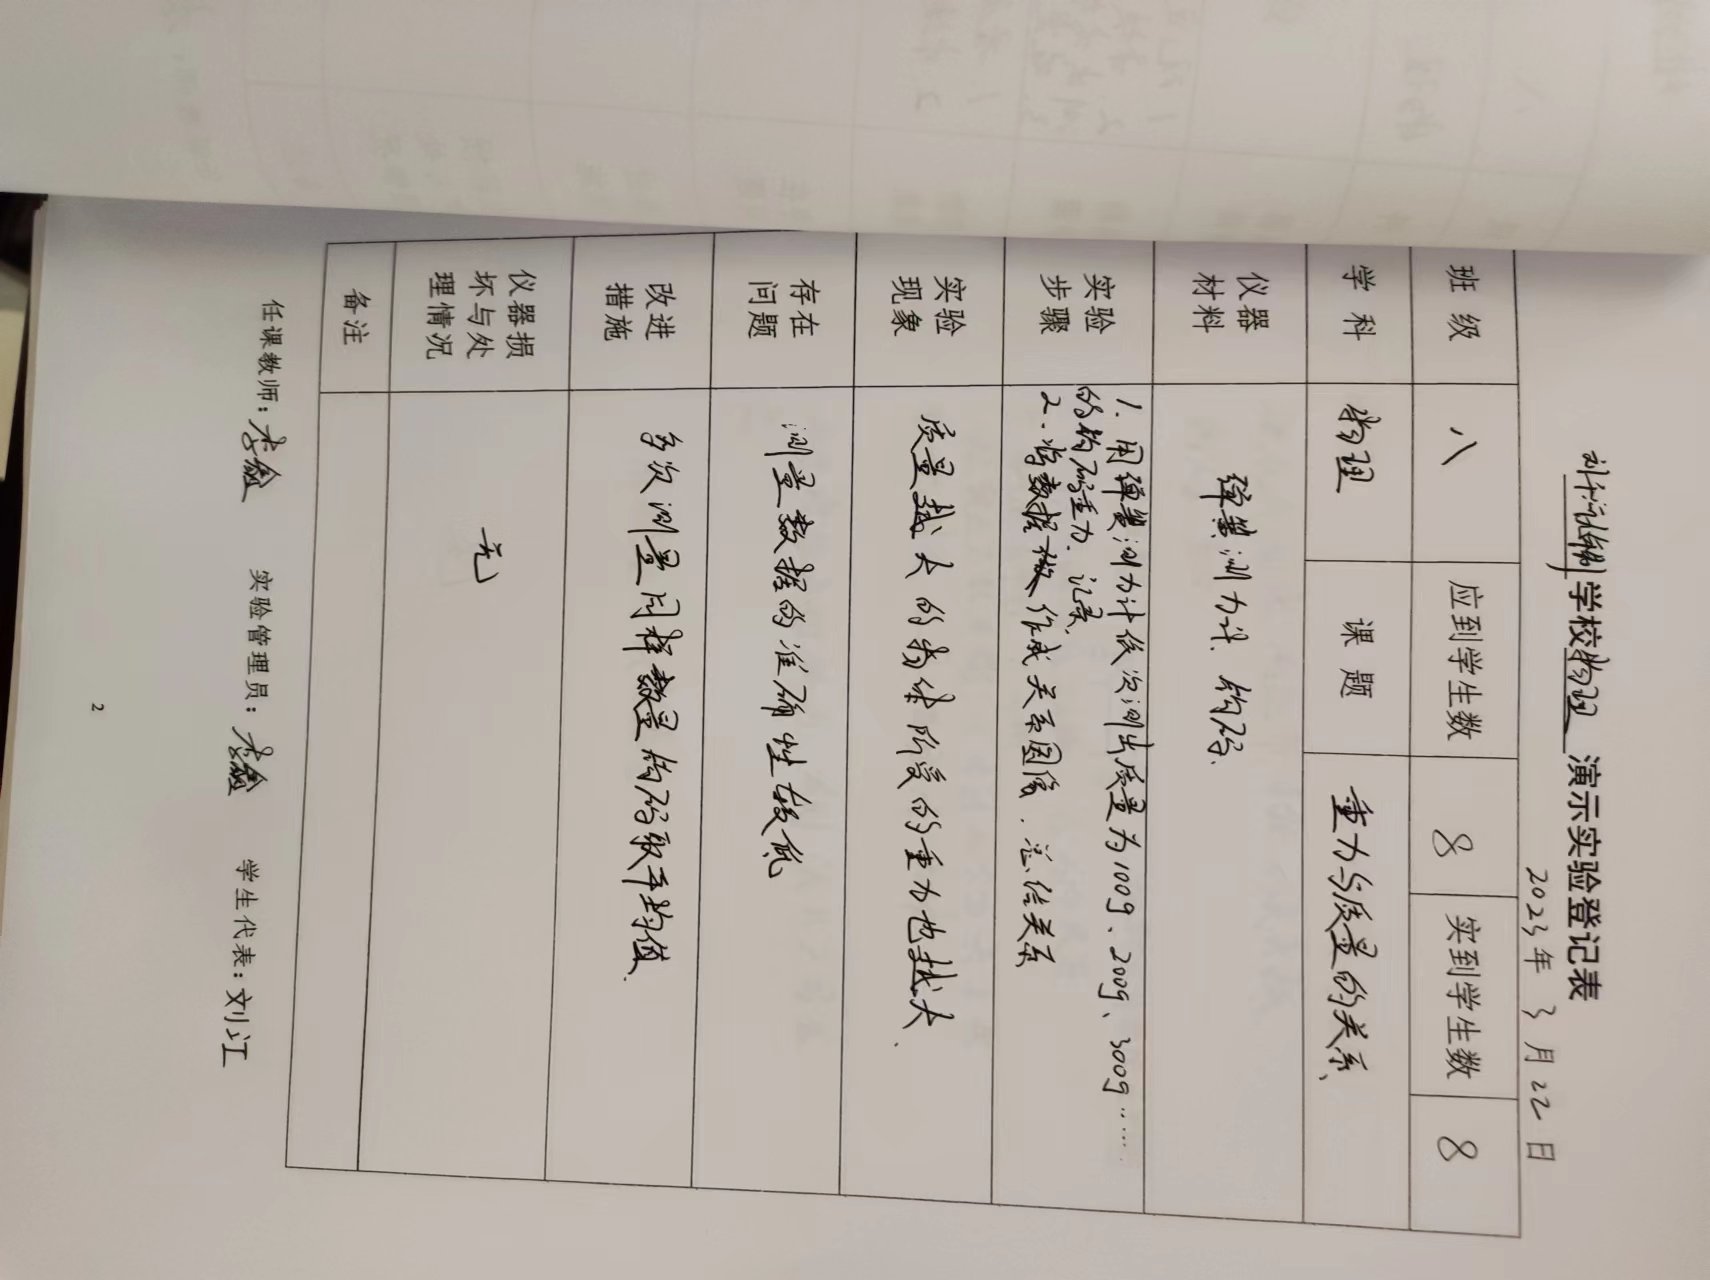 学校物理 演示实验登记表
2023年 3月22日
班级 八 应到学生数 8 实到学生数 8
学科 物理 课题 重力与质量的关系、
仪器材料 弹簧测力计、钩码、
实验步骤 1. 用弹簧测力计依次测出质量为100g、200g、300g……
的钩码重力、记录、
2、将数据做作成关系图像、总结关系
实验现象 质量越大的物体所受的重力也越大、
存在问题 测量数据的准确性较低
改进措施 多次测量同样数量钩码取平均值、
仪器损坏与处理情况 无
备注
任课教师: 实验管理员: 学生代表:刘江
2